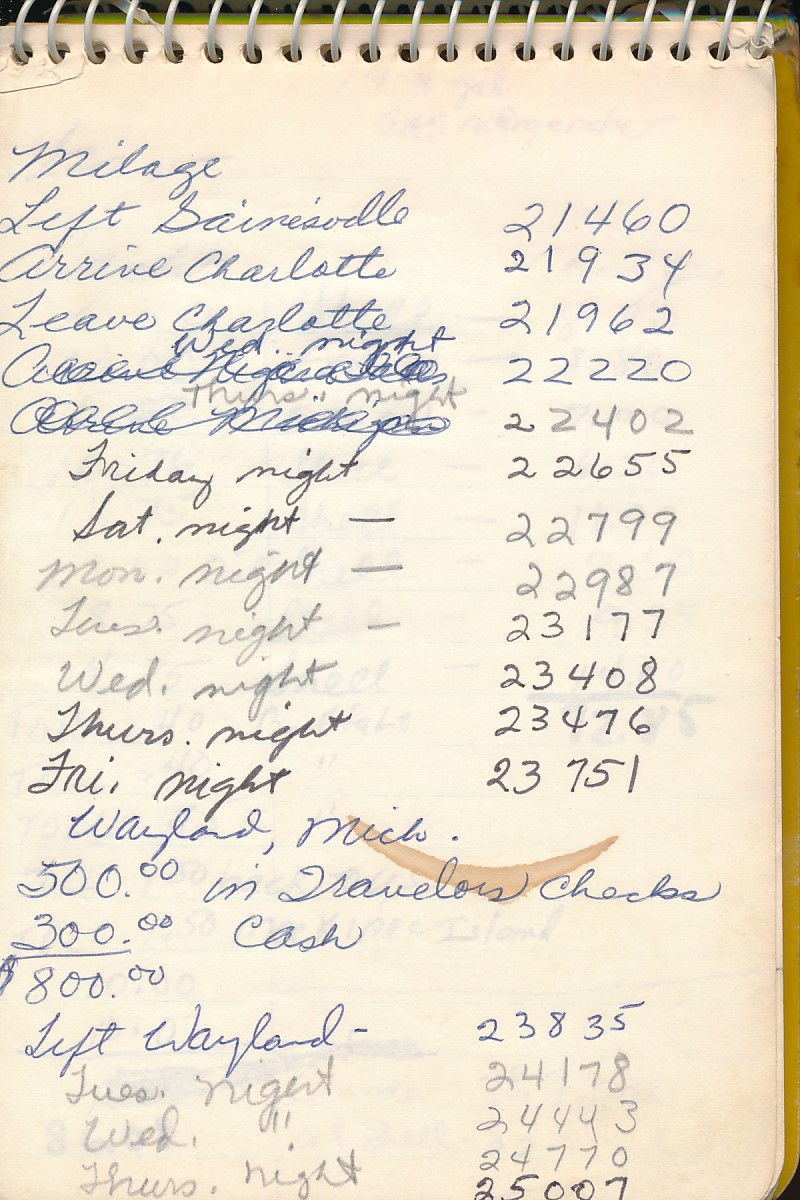 Milage
Left Gainesville 21460
Arrive Charlotte 21934
Leave Charlotte 21962
Wed. night
Arrive Niagara Falls 22220
Thurs. night
Michigan 22402
Friday night 22655
Sat. night — 22799
Mon. night — 22987
Tues. night — 23177
Wed. night 23408
Thurs. night 23476
Fri. night 23751
Wayland, Mich.
500.00 in Travelors Checks
300.00 Cash
$800.00
Left Wayland - 23835
Tues. night 24178
Wed. " 24443
24770
Thurs. night 25007